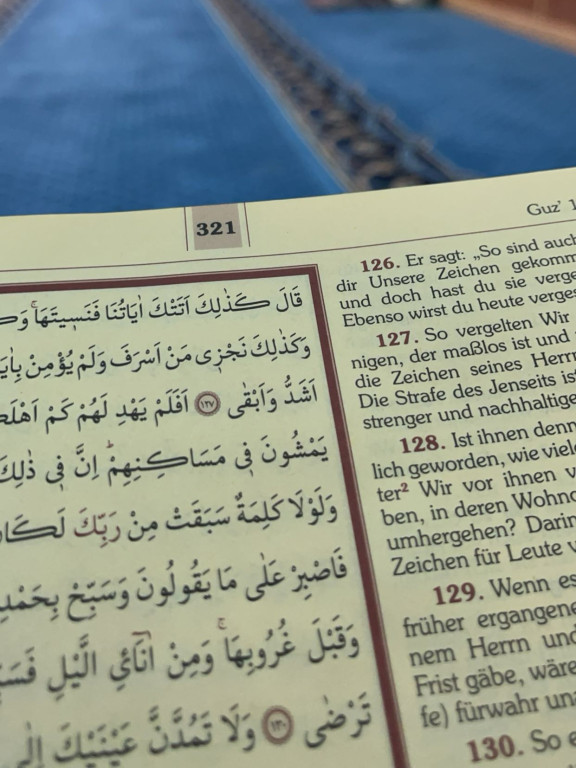 321
Guz' 1
قَالَ كَذٰلِكَ اَتَتْكَ اٰيَاتُنَا فَنَسٖيتَهَاۚ
وَكَذٰلِكَ نَجْزٖى مَنْ اَسْرَفَ وَلَمْ يُؤْمِنْ
اَشَدُّ وَاَبْقٰى ١٢٧ اَفَلَمْ يَهْدِ لَهُمْ كَمْ
يَمْشُونَ فٖى مَسَاكِنِهِمْۜ اِنَّ فٖى ذٰلِكَ
وَلَوْلَا كَلِمَةٌ سَبَقَتْ مِنْ رَبِّكَ
فَاصْبِرْ عَلٰى مَا يَقُولُونَ وَسَبِّحْ
وَقَبْلَ غُرُوبِهَاۚ وَمِنْ اٰنَٓائِ الَّيْلِ
تَرْضٰى ١٣٠ وَلَا تَمُدَّنَّ عَيْنَيْكَ اِلٰى
126. Er sagt: „So sind auch
dir Unsere Zeichen gekomm
und doch hast du sie verge
Ebenso wirst du heute verges
127. So vergelten Wir
nigen, der maßlos ist und
die Zeichen seines Herrn
Die Strafe des Jenseits ist
strenger und nachhaltige
128. Ist ihnen denn
lich geworden, wie viele
ter² Wir vor ihnen v
ben, in deren Wohn
umhergehen? Darin
Zeichen für Leute
129. Wenn es
früher ergangene
nem Herrn und
Frist gäbe, wäre
fe) fürwahr una
130. So e